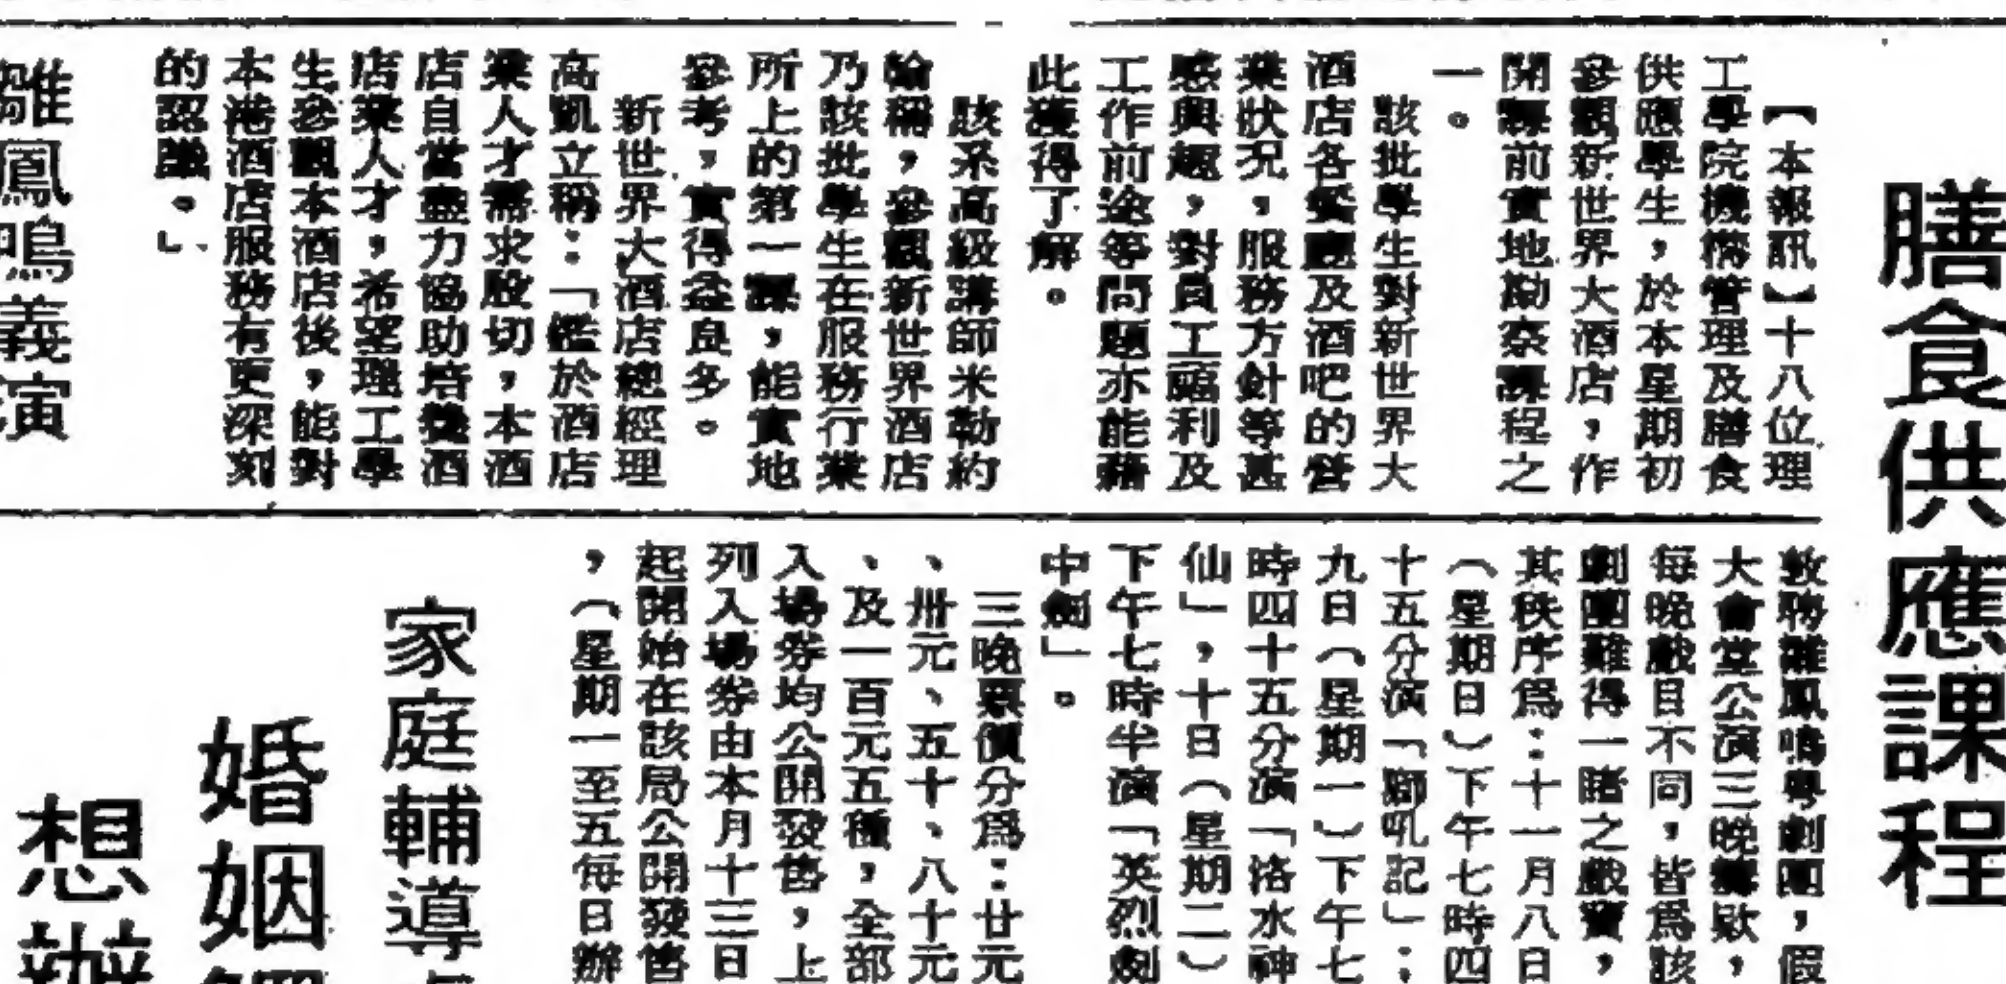 膳食供應課程
【本報訊】十八位理
工學院機構管理及膳食
供應學生，於本星期初
參觀新世界大酒店，作
開課前實地勘察課程之
一。
該批學生對新世界大
酒店各餐廳及酒吧的營
業狀況，服務方針等甚
感興趣，對員工福利及
工作前途等問題亦能藉
此獲得了解。
該系高級講師米勒約
翰稱，參觀新世界酒店
乃該批學生在服務行業
所上的第一課，能實地
參考，實得益良多。
新世界大酒店總經理
高凱立稱：「鑑於酒店
業人才需求殷切，本酒
店自當盡力協助培養酒
店業人才，希望理工學
生參觀本酒店後，能對
本港酒店服務有更深刻
的認識。」
雛鳳鳴義演
敦聘雛鳳鳴粵劇團，假
大會堂公演三晚籌欵，
每晚戲目不同，皆爲該
劇團難得一睹之戲寶，
其秩序爲：十一月八日
（星期日）下午七時四
十五分演「獅吼記」；
九日（星期一）下午七
時四十五分演「洛水神
仙」，十日（星期二）
下午七時半演「英烈劍
中劍」。
三晚票價分爲：廿元
、卅元、五十、八十元
、及一百元五種，全部
入場券均公開發售，上
列入場券由本月十三日
起開始在該局公開發售
，（星期一至五每日辦
家庭輔導
婚姻
想辦